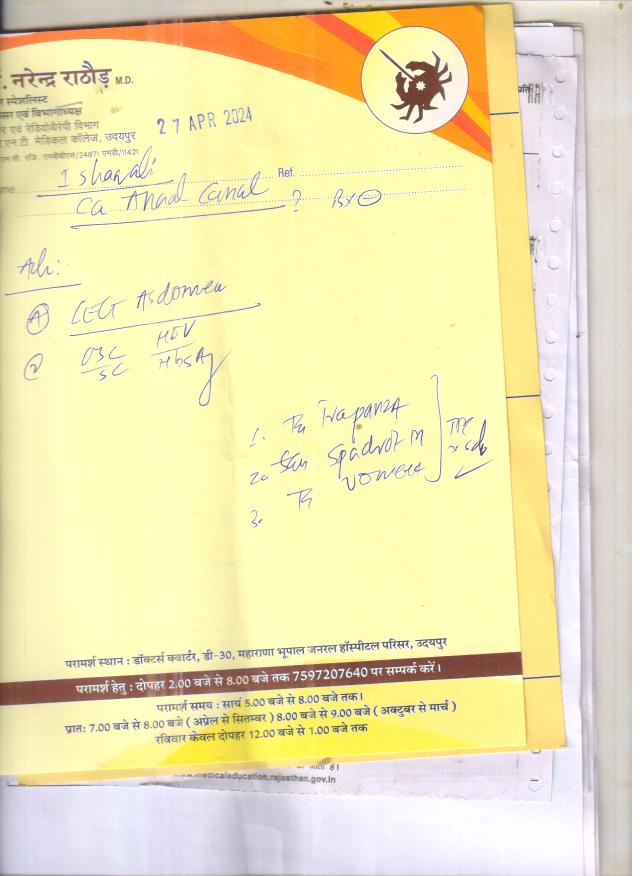 . नरेन्द्र राठौड़ M.D.
र स्पेशलिस्ट
सर एवं विभागाध्यक्ष
र एवं रेडियोथेरेपी विभाग
एन.टी. मेडिकल कॉलेज, उदयपुर
एम.सी. रजि. एमबीबीएस/24871 एमडी/11421
27 APR 2024
ame Ishaqali Ref.
Ca Anal Canal ? Bx ⊖
Adv:
① CECT Abdomen
② CBC HIV
SC HbsAg
1. Tb Trapanza
2.
3. Tb Vomeet
परामर्श स्थान : डॉक्टर्स क्वार्टर, डी-30, महाराणा भूपाल जनरल हॉस्पीटल परिसर, उदयपुर
परामर्श हेतु : दोपहर 2.00 बजे से 8.00 बजे तक 7597207640 पर सम्पर्क करें।
परामर्श समय : सायं 5.00 बजे से 8.00 बजे तक।
प्रातः 7.00 बजे से 8.00 बजे ( अप्रेल से सितम्बर ) 8.00 बजे से 9.00 बजे ( अक्टुबर से मार्च )
रविवार केवल दोपहर 12.00 बजे से 1.00 बजे तक
www.medicaleducation.rajasthan.gov.in